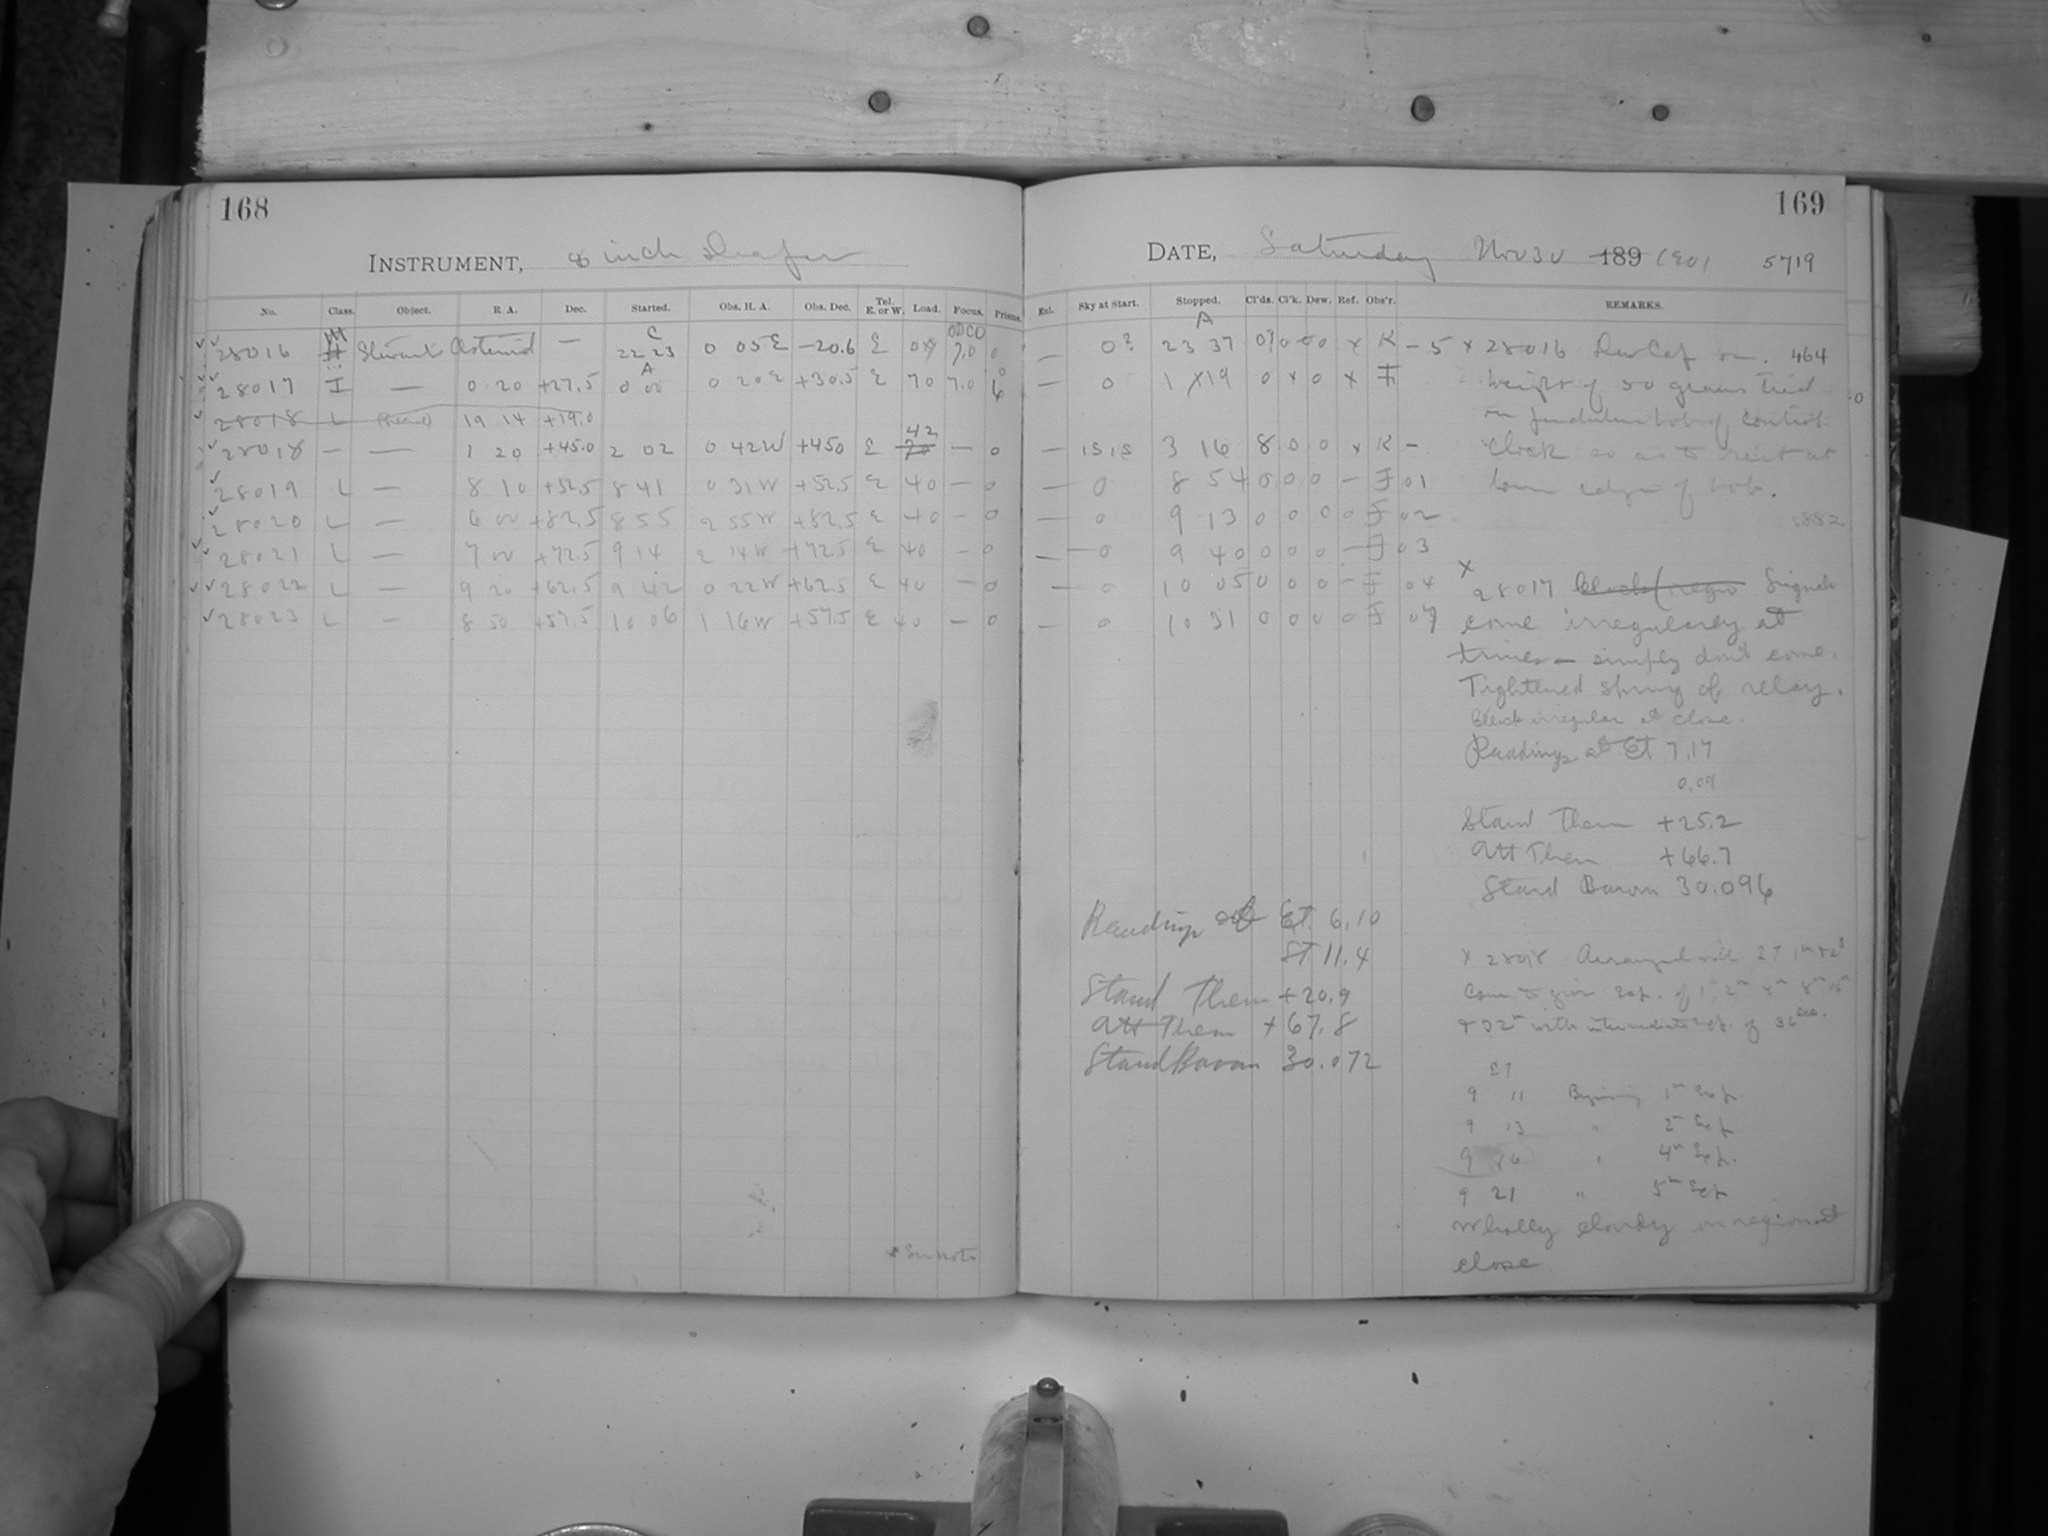 168
INSTRUMENT, 8 inch Draper
No. Class. Object. R. A. Dec. Started. Obs. H. A. Obs. Dec. Tel. E. or W. Load. Focus. Prisms.
28016 M Stewart's Asteroid — C 22 23 0 05 E -20.6 E 7.0 0
28017 I — 0 20 +27.5 A 0 00 0 20 E +30.5 E 70 7.0
28018 L 19 14 +19.0
28018 — — 1 20 +45.0 2 02 0 42 W +45.0 E 42 70 — 0
28019 L — 8 10 +52.5 8 41 0 31 W +52.5 E 40 — 0
28020 L — 6 00 +82.5 8 55 2 55 W +82.5 E 40 — 0
28021 L — 7 00 +72.5 9 14 2 14 W +72.5 E 40 — 0
28022 L — 9 20 +62.5 9 42 0 22 W +62.5 E 40 — 0
28023 L — 8 50 +57.5 10 06 1 16 W +57.5 E 40 — 0
* See note
169
DATE, Saturday Nov 30 189 1901 5719
Enl. Sky at Start. Stopped. Cl'ds. Cl'k. Dew. Ref. Obs'r. REMARKS.
— 0? A 23 37 0? 0 0 0 x K - 5 x 28016 Dew Cap on. 464
— 0 1 19 0 x 0 x F weight of 50 grams tied
on pendulum bob of control
— 15 15 3 16 8 0 0 x K - clock so as to rest at
— 0 8 54 0 0 0 — F 01 lower edge of bob.
— 0 9 13 0 0 0 0 F 02 .882
— 0 9 40 0 0 0 — F 03
— 0 10 05 0 0 0 — F 04 x 28017 Signals
— 0 10 31 0 0 0 0 F come irregularly at
times — simply don't come.
Tightened spring of relay.
Clock irregular at close.
Readings at ET 7.17
0.09
Stand Therm +25.2
Att Therm +66.7
Stand Barom 30.096
Readings at ET 6.10
ST 11.4
Stand Therm +20.9
Att Therm +67.8
Stand Barom 30.072
x 28018 Arranged with
Cam to give Exp. of 1m 2m 4m 8m 16m
+ 32m with intermediate exp. of
ET
9 11 Beginning 1st Exp.
9 13 " 2m Exp
9 16 " 4m Exp.
9 21 " 5th Exp
Wholly cloudy in region at
close